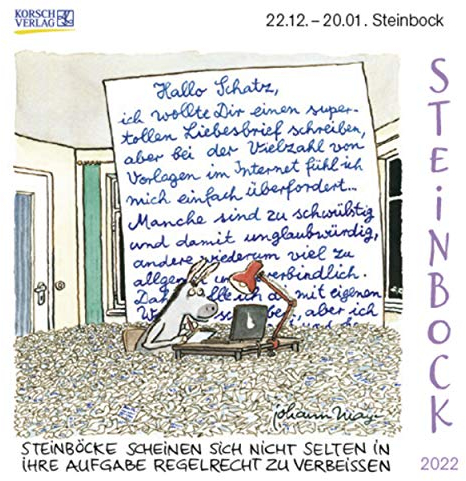 KORSCH
VERLAG
22.12. – 20.01. Steinbock
STEiNBOCK
Hallo Schatz,
ich wollte Dir einen super-
tollen Liebesbrief schreiben,
aber bei der Vielzahl von
Vorlagen im Internet fühl ich
mich einfach überfordert...
Manche sind zu schwülstig
und damit unglaubwürdig,
andere wiederum viel zu
allgem
verbindlich.
mit eigenen
aber ich
STEINBÖCKE SCHEINEN SICH NICHT SELTEN IN
IHRE AUFGABE REGELRECHT ZU VERBEISSEN
2022